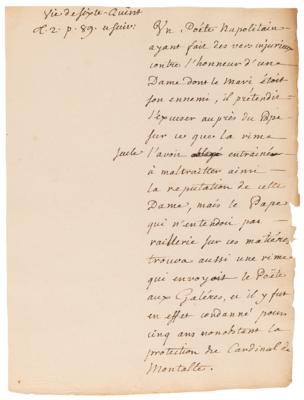 Vie de Sixte-Quint
t. 2 p. 89. u suiv.
Un Poëte Napolitain
ayant fait des vers injurieux
contre l'honneur d'une
Dame dont le Mari étoit
son ennemi, il prétendit
s'excuser auprès du Pape
sur ce que la rime
seule l'avoit entrainé
à maltraitter ainsi
la reputation de cette
Dame, mais le Pape
qui n'entendoit pas
raillerie sur ces matières,
trouva aussi une rime
qui envoyoit le Poëte
aux Galéres, et il y fut
en effet condanné pour
cinq ans nonobstant la
protection du Cardinal de
Montalte.